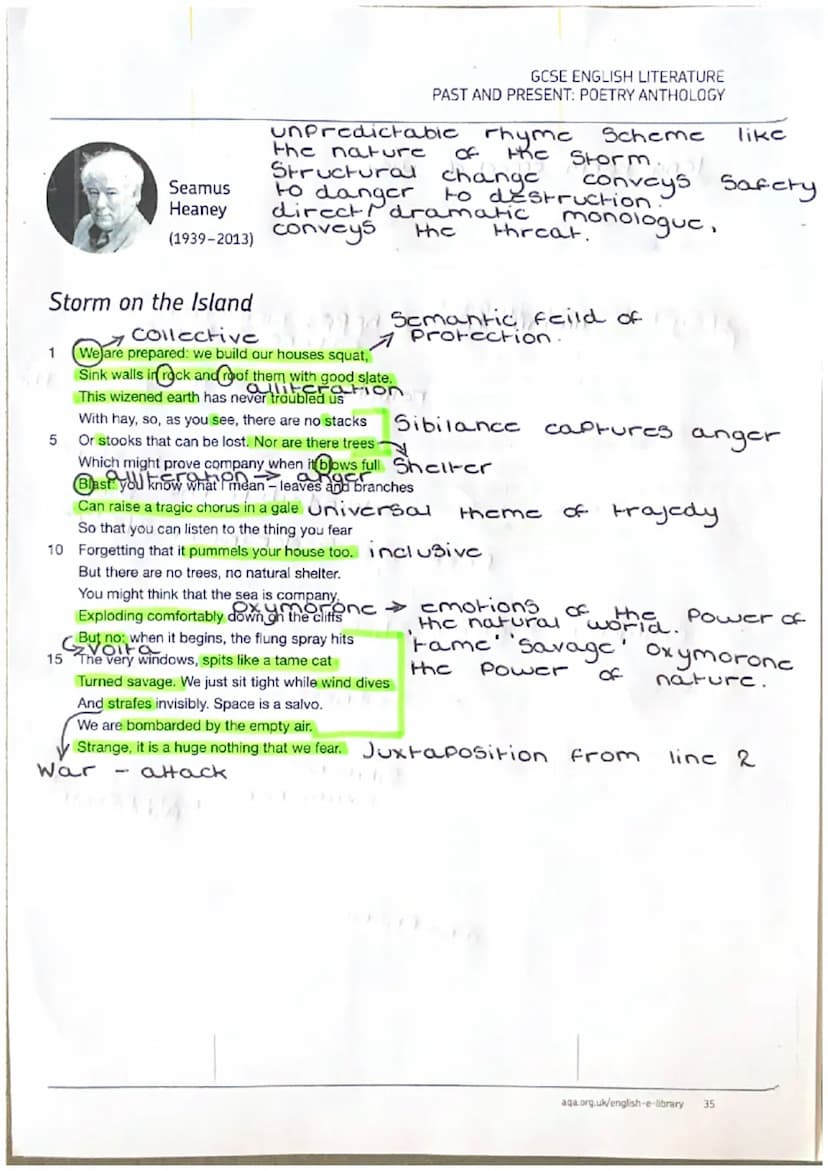 GCSE ENGLISH LITERATURE
PAST AND PRESENT: POETRY ANTHOLOGY
unpredictable rhyme scheme like
the nature of the storm.
Structural change conveys safety
to danger to destruction.
direct/dramatic monologue,
conveys the threat.
Seamus
Heaney
(1939–2013)
Storm on the Island
Semantic feild of
protection.
Collective
1 We are prepared: we build our houses squat,
Sink walls in rock and roof them with good slate.
alliteration
This wizened earth has never troubled us
With hay, so, as you see, there are no stacks
Sibilance captures anger
5 Or stooks that can be lost. Nor are there trees
Which might prove company when it blows full
Shelter
alliteration → anger
Blast: you know what I mean – leaves and branches
Can raise a tragic chorus in a gale
universal theme of trajedy
So that you can listen to the thing you fear
10 Forgetting that it pummels your house too.
inclusive
But there are no trees, no natural shelter.
You might think that the sea is company,
oxymorone → emotions of the
the natural world. Power of
Exploding comfortably down on the cliffs
But no: when it begins, the flung spray hits
'tame' 'savage' oxymorone
volta
15 The very windows, spits like a tame cat
the power of nature.
Turned savage. We just sit tight while wind dives
And strafes invisibly. Space is a salvo.
We are bombarded by the empty air.
Strange, it is a huge nothing that we fear.
Juxtaposition from line 2
War – attack
aqa.org.uk/english-e-library 35